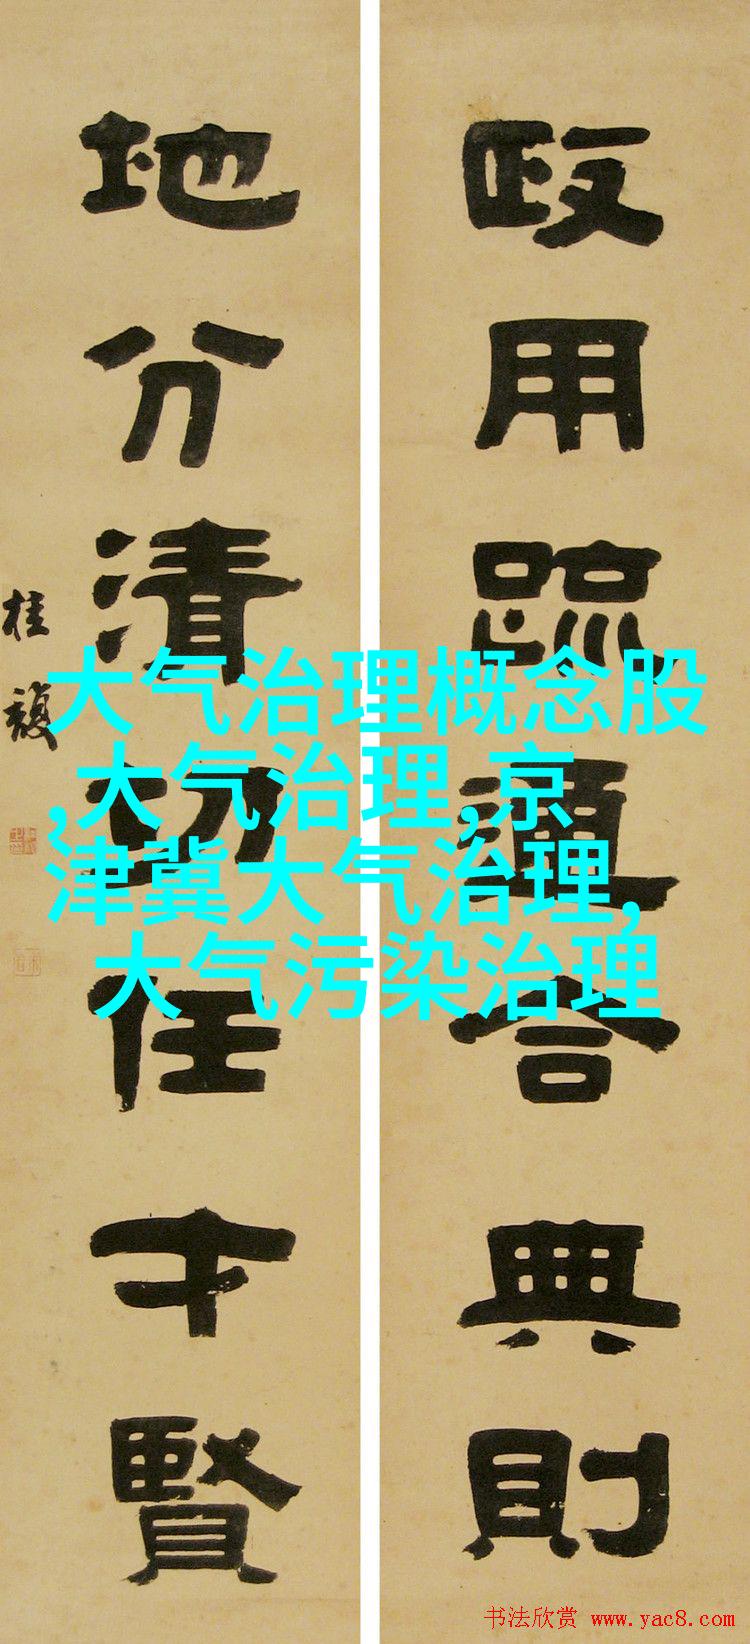 政用疏通合典則
地分清切任才賢
桂馥
大气治理概念股
,大气治理,京
津冀大气治理,
大气污染治理
书法欣赏 www.yac8.com